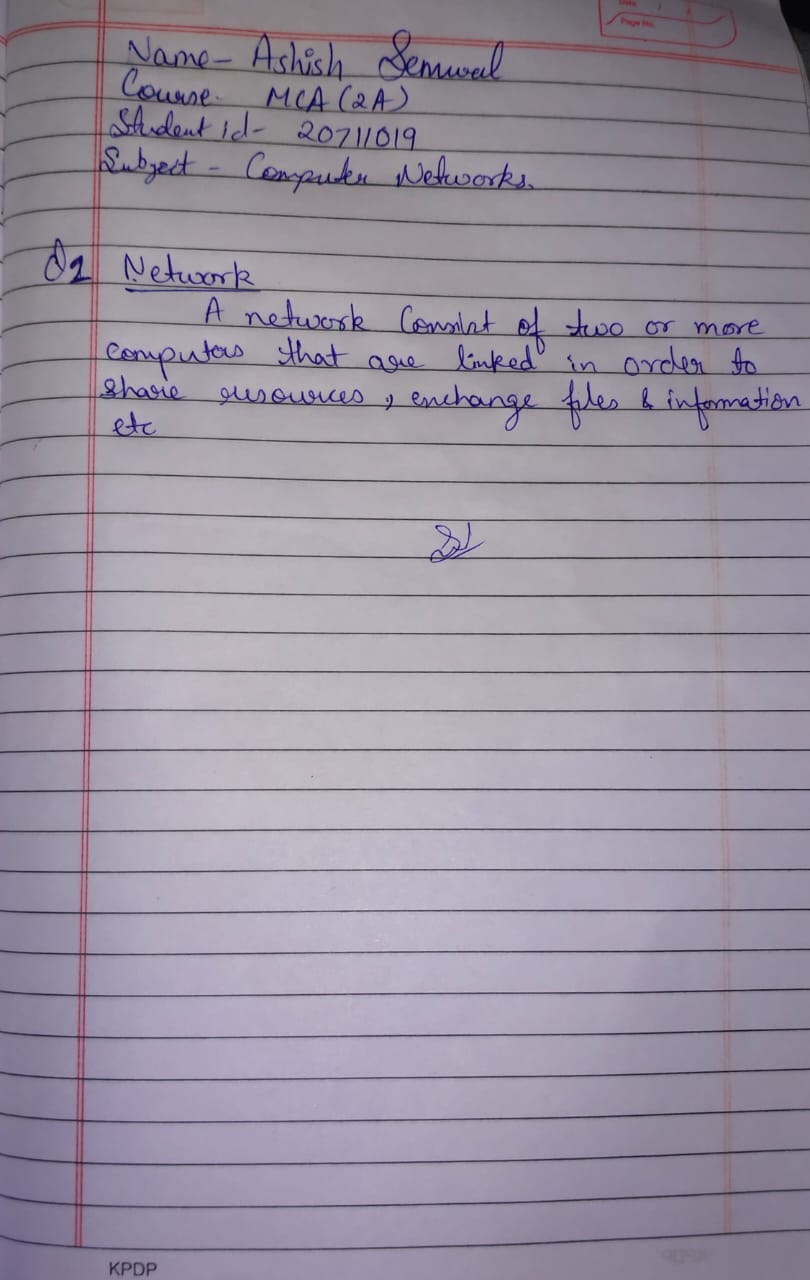 Page No.
Name- Ashish Semwal
Course- MCA (2A)
Student id- 20711019
Subject - Computer Networks.
Q1 Network
A network Consist of two or more
computers that are linked in order to
share resources, enchange files & information
etc
KPDP